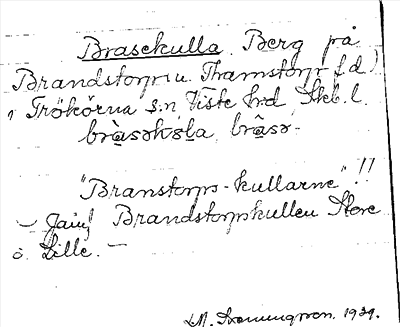 Brasekulla. Berg på
Brandstorp u. Thamstorp f.d.)
i Trökörna s:n, Viste h:d, Skb.l.
bràsəkɷ̀la, brâsə-
"Branstorps-kullarne"!!
– Jmf Brandstorpskullen Store
o. Lille. –
1939.